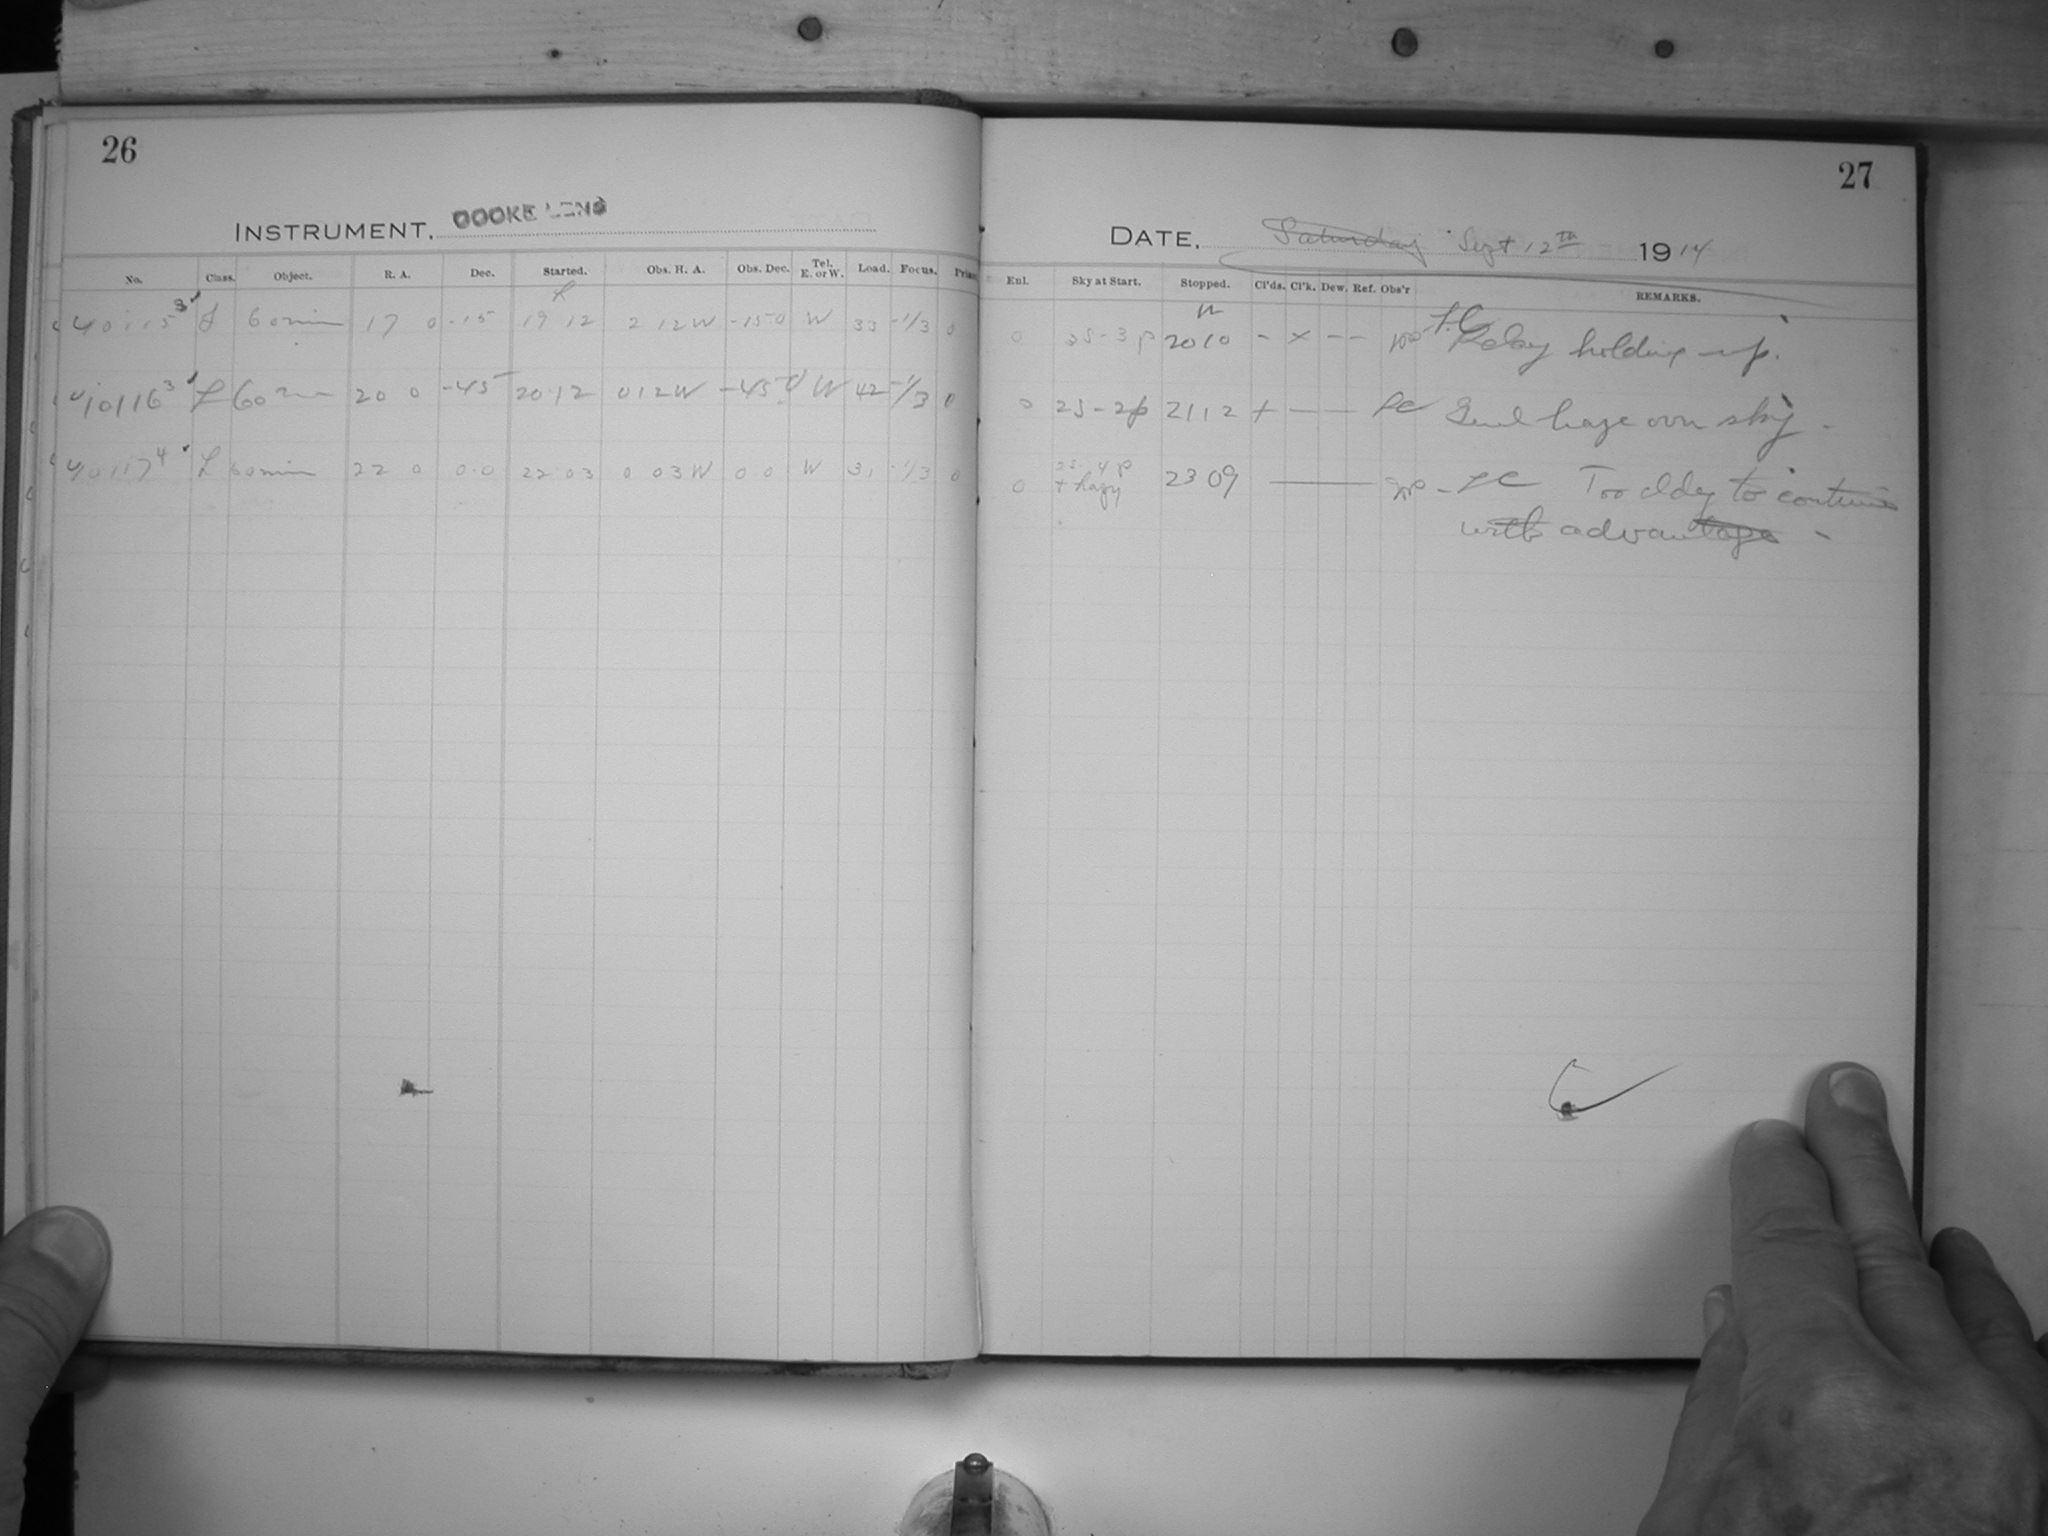 26
INSTRUMENT, COOKE LENS
No. Class. Object. R. A. Dec. Started. Obs. H. A. Obs. Dec. Tel. E. or W. Load. Focus.
40115 3 L 60 min 17 0 -15 19 12 2 12 W -15 0 W 33 -1/3 0
40116 3 L 60 m 20 0 -45 20 12 0 12 W -45 0 W 42 -1/3 0
40117 4 L 60 min 22 0 0 0 22 03 0 03 W 0 0 W 31 -1/3 0
27
DATE, Saturday Sept 12th 1914
Enl. Sky at Start. Stopped. Cl'ds. Cl'k. Dew. Ref. Obs'r REMARKS.
0 2S-3p 2010 - x - - Relay holding up.
0 2S-2p 2112 + - - - haze over sky.
0 2S-4p + hazy 2309 Too cldy to continue
with advantage -